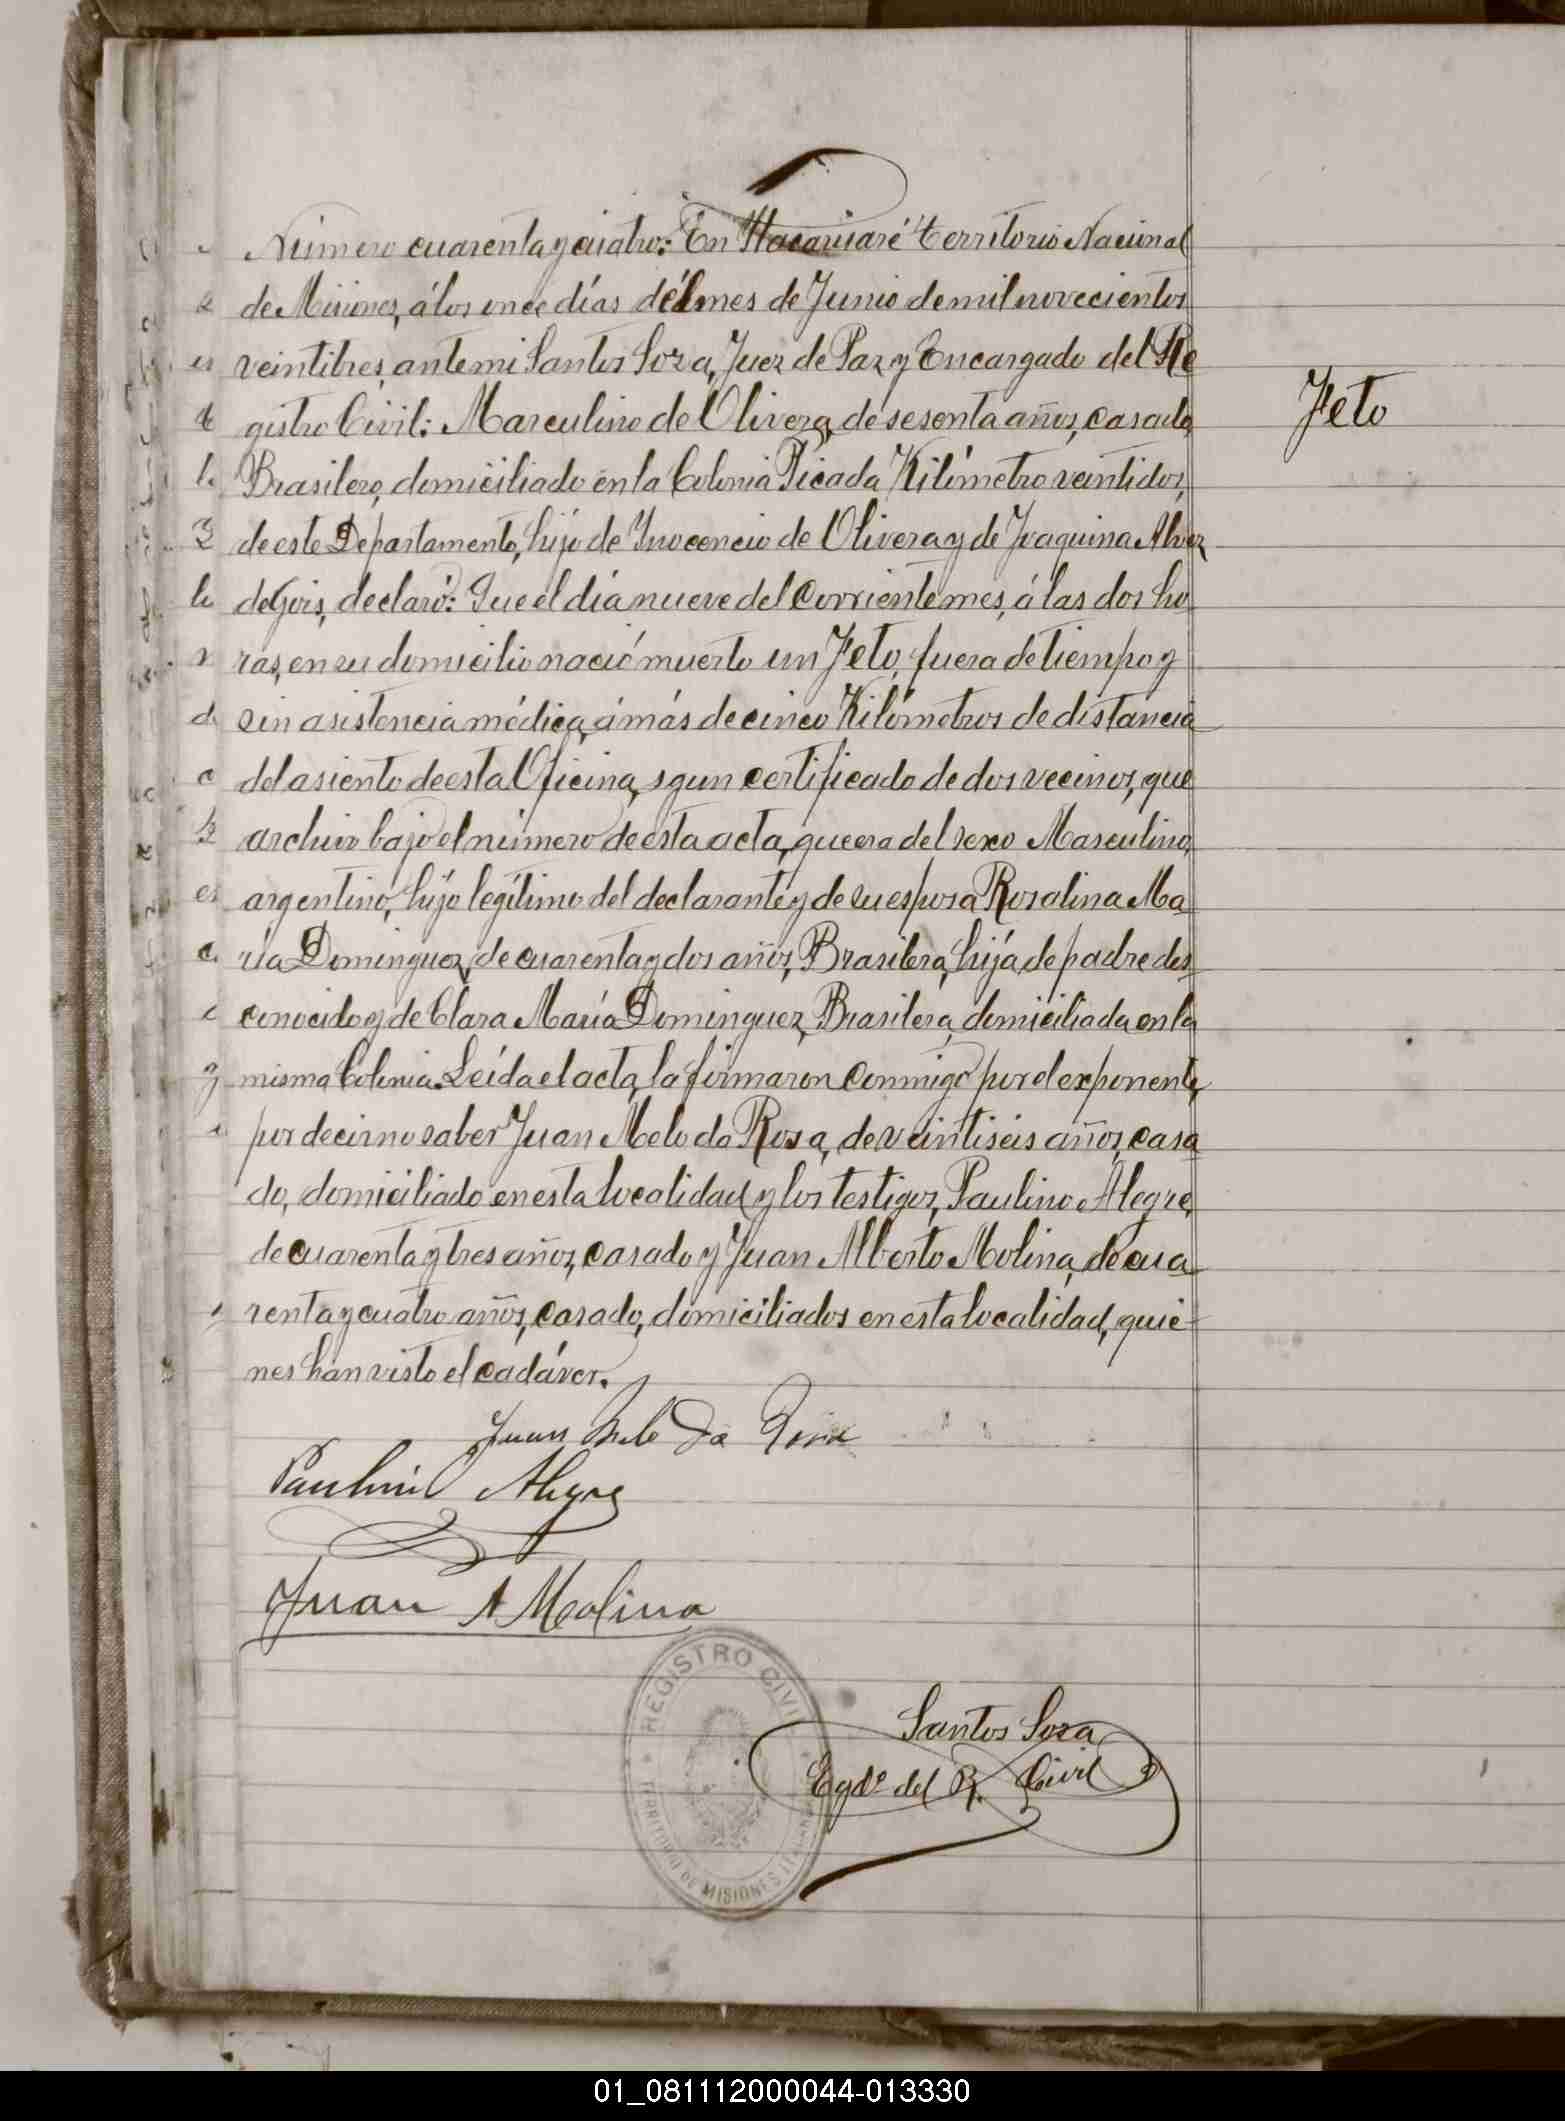 Número cuarenta y cuatro: En Itacaruaré Territorio Nacional
de Misiones, á los once días del mes de Junio de mil novecientos
veintitres, ante mi Santos Soza, Juez de Paz y Encargado del Re
gistro Civil: Marculino de Olivera, de sesenta años, casado,
Feto
Brasilero, domiciliado en la Colonia Picada Kilómetro veintidos,
de este Departamento, hijo de Inocencio de Olivera y de Joaquina Alvez
de Gois, declaró: Que el día nueve del corriente mes, á las dos ho
ras, en su domicilio nació muerto un Feto, fuera de tiempo y
sin asistencia médica, á más de cinco Kilómetros de distancia
del asiento de esta Oficina, sgun certificado de dos vecinos, que
archivo bajo el número de esta acta, que era del sexo Masculino,
argentino, hijo legítimo del declarante y de su esposa Rosalina Ma
ría Dominguez, de cuarenta y dos años, Brasilera, hija de padre des
conocido y de Clara María Dominguez, Brasilera, domiciliada en la
misma Colonia. Leída el acta, la firmaron conmigo por el exponente,
por decir no saber Juan Melo da Rosa, de veintiseis años, casa
do, domiciliado en esta localidad y los testigos, Paulino Alegre,
de cuarenta y tres años, casado y Juan Alberto Molina, de cua
renta y cuatro años, casado, domiciliados en esta localidad, quie-
nes han visto el cadáver.
Juan Melo Da Rosa
Paulino Alegre
Juan A Molina
REGISTRO CIVIL
TERRITORIO DE MISIONES
Santos Soza
Egdo del R. Civil
01_081112000044-013330